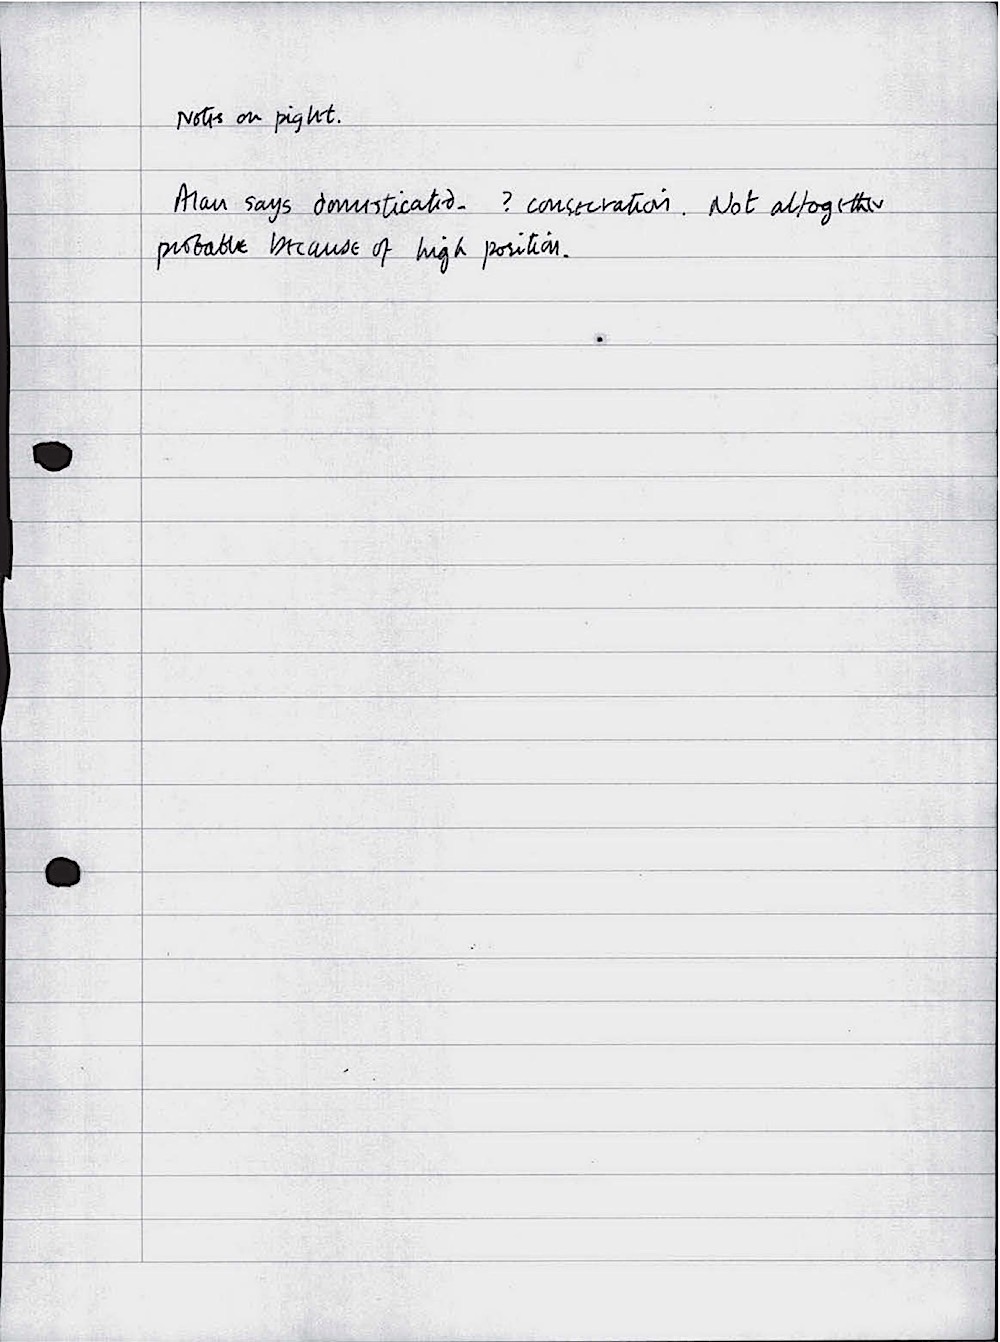 Notes on pight.
Alan says domesticated. ? consecration. Not altogether
probable because of high position.